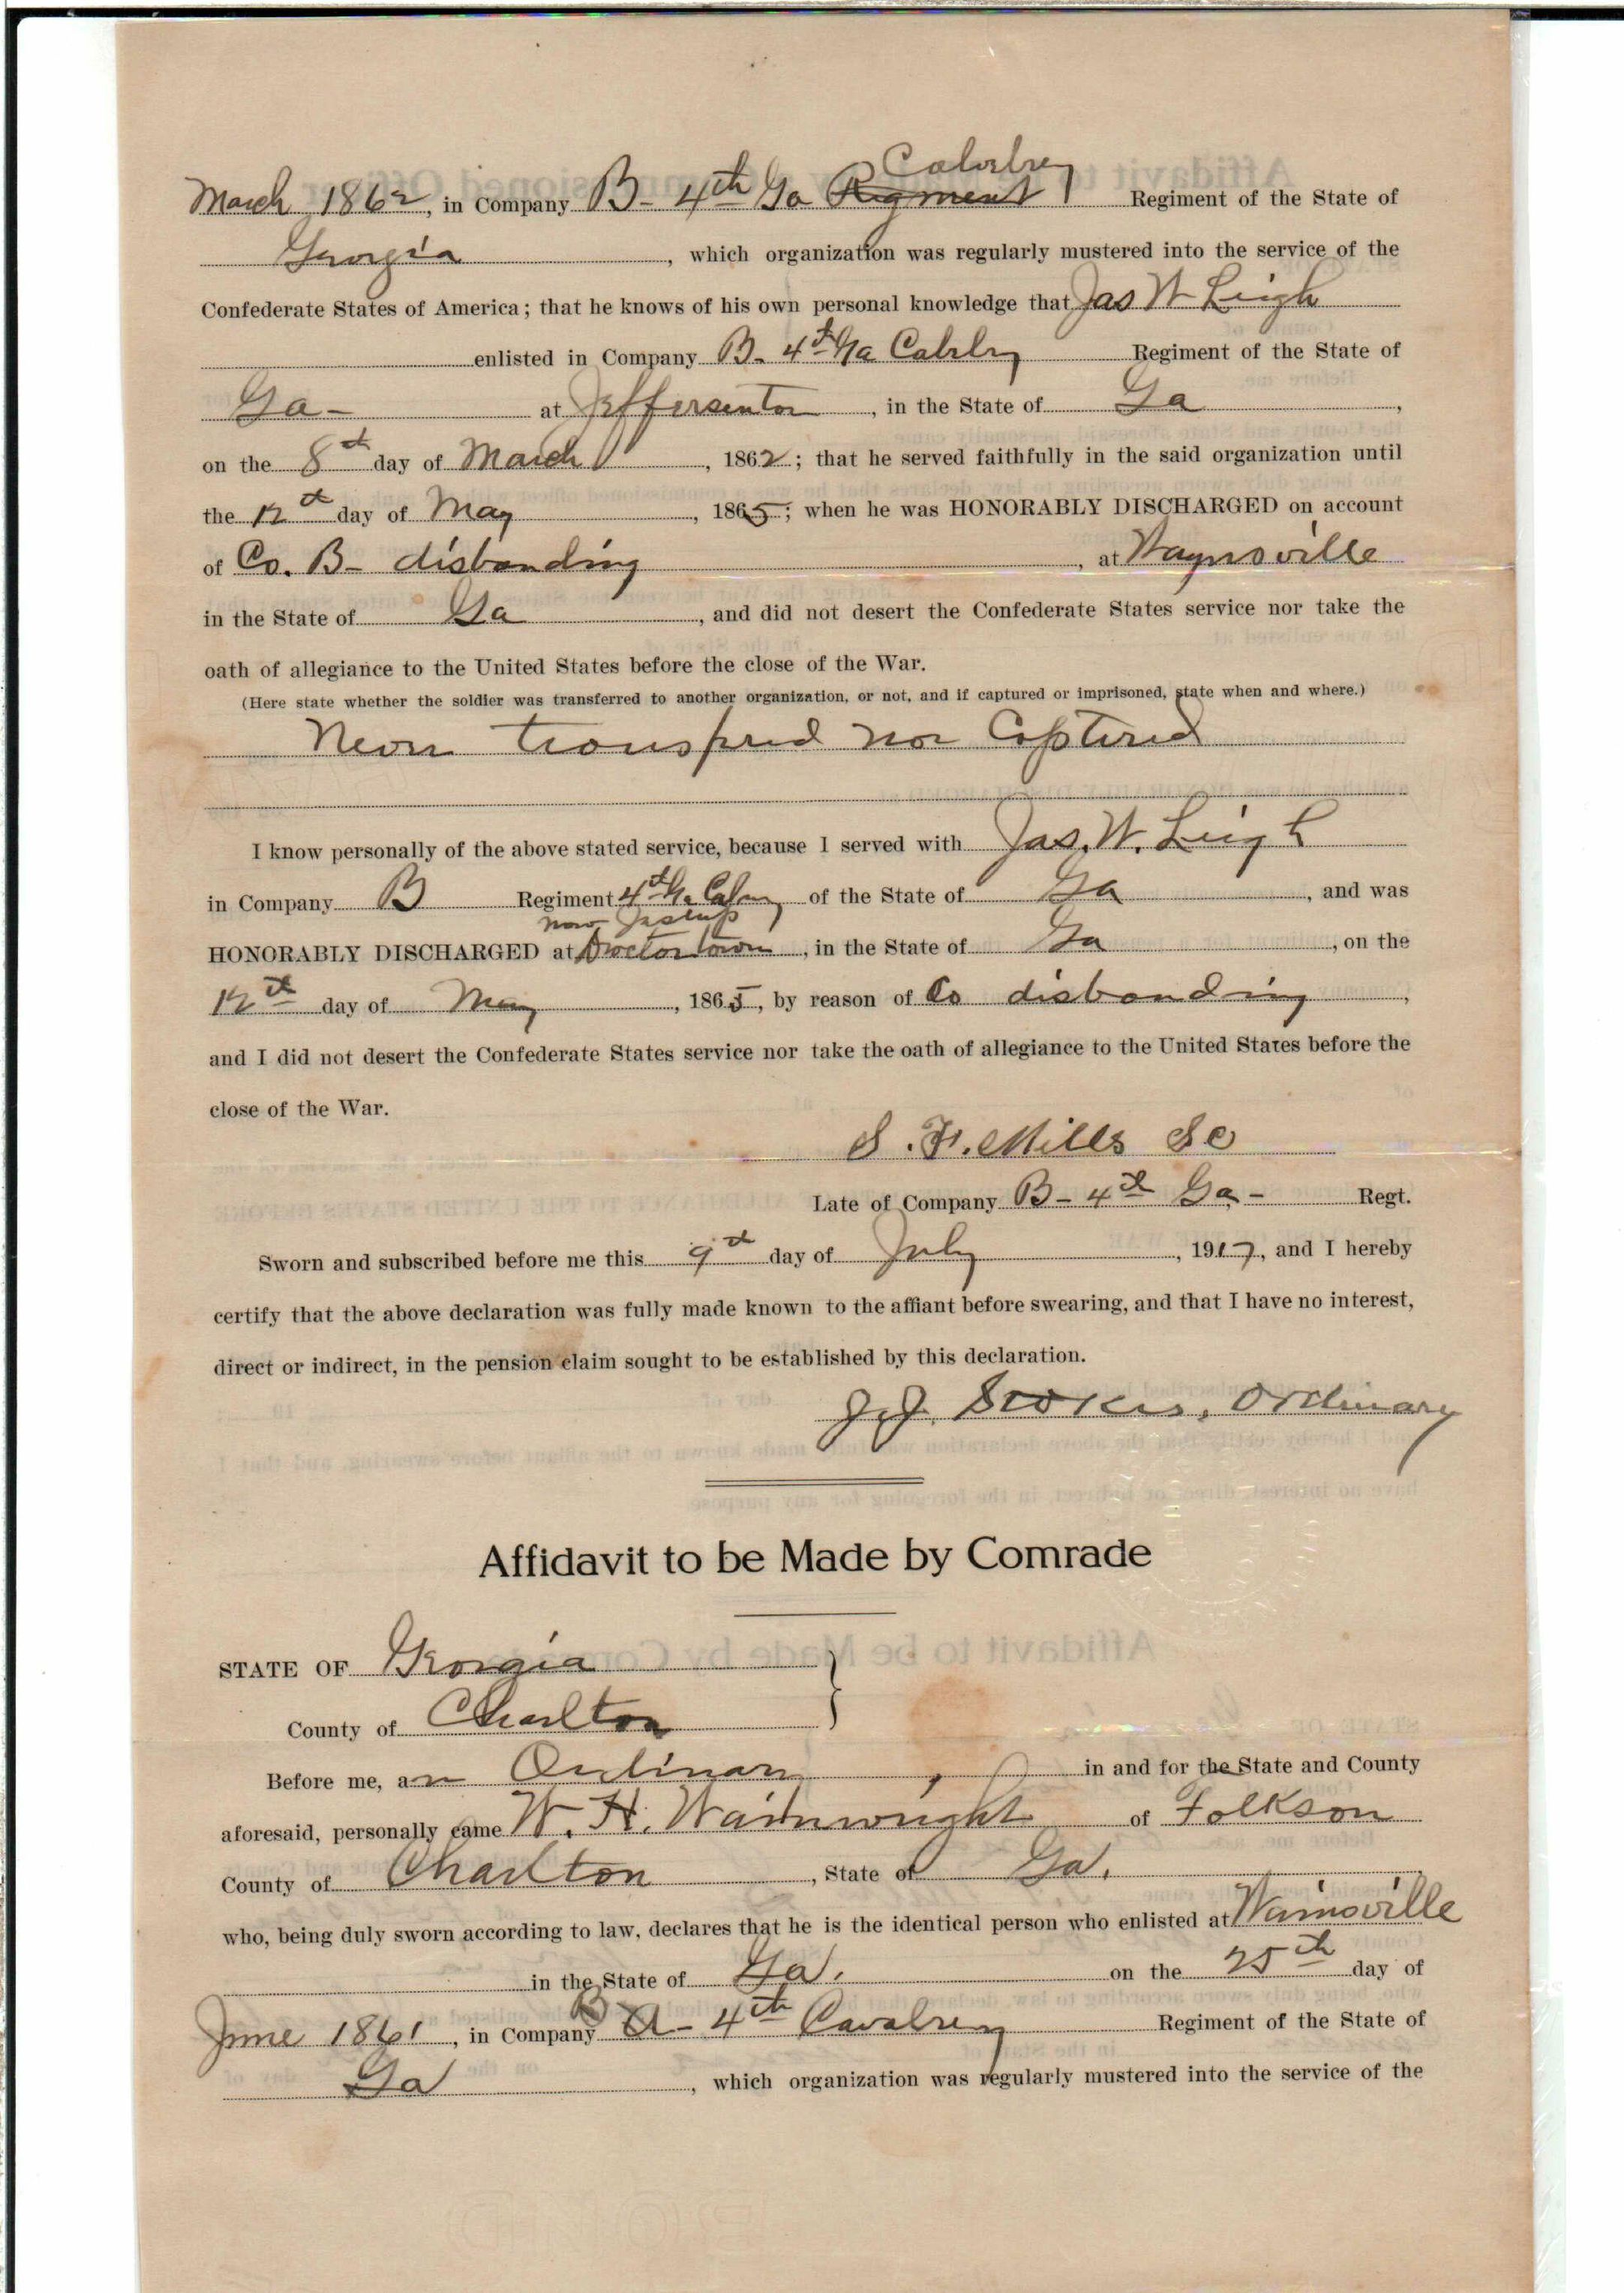 Calvelrey
March 1862, in Company B- 4th Ga Regment Regiment of the State of
Georgia, which organization was regularly mustered into the service of the
Confederate States of America; that he knows of his own personal knowledge that Jas W Leigh
enlisted in Company B. 4th Ga Regiment of the State of
Ga- at Jeffersenton, in the State of Ga,
on the 8th day of March, 1862; that he served faithfully in the said organization until
the 12th day of May, 1865; when he was HONORABLY DISCHARGED on account
of Co. B- disbanding, at Waynsville
in the State of Ga, and did not desert the Confederate States service nor take the
oath of allegiance to the United States before the close of the War.
(Here state whether the soldier was transferred to another organization, or not, and if captured or imprisoned, state when and where.)
Never nor Captured
I know personally of the above stated service, because I served with Jas. W. Leigh
in Company B Regiment 4th Ga of the State of Ga, and was
now Jesup
HONORABLY DISCHARGED at Doctortown, in the State of Ga, on the
12th day of May, 1865, by reason of Co disbanding,
and I did not desert the Confederate States service nor take the oath of allegiance to the United States before the
close of the War.
S. F. Mills
Late of Company B- 4th Ga- Regt.
Sworn and subscribed before me this 9th day of July, 1917, and I hereby
certify that the above declaration was fully made known to the affiant before swearing, and that I have no interest,
direct or indirect, in the pension claim sought to be established by this declaration.
J.J. Stokes, Ordinary
Affidavit to be Made by Comrade
STATE OF Georgia
County of Charlton
Before me, an Ordinary, in and for the State and County
aforesaid, personally came W. H. Wainwright of Folkson
County of Charlton, State of Ga.
who, being duly sworn according to law, declares that he is the identical person who enlisted at Wainsville
in the State of Ga. on the 25th day of
B
June 1861, in Company A- 4th Cavalrey Regiment of the State of
Ga, which organization was regularly mustered into the service of the